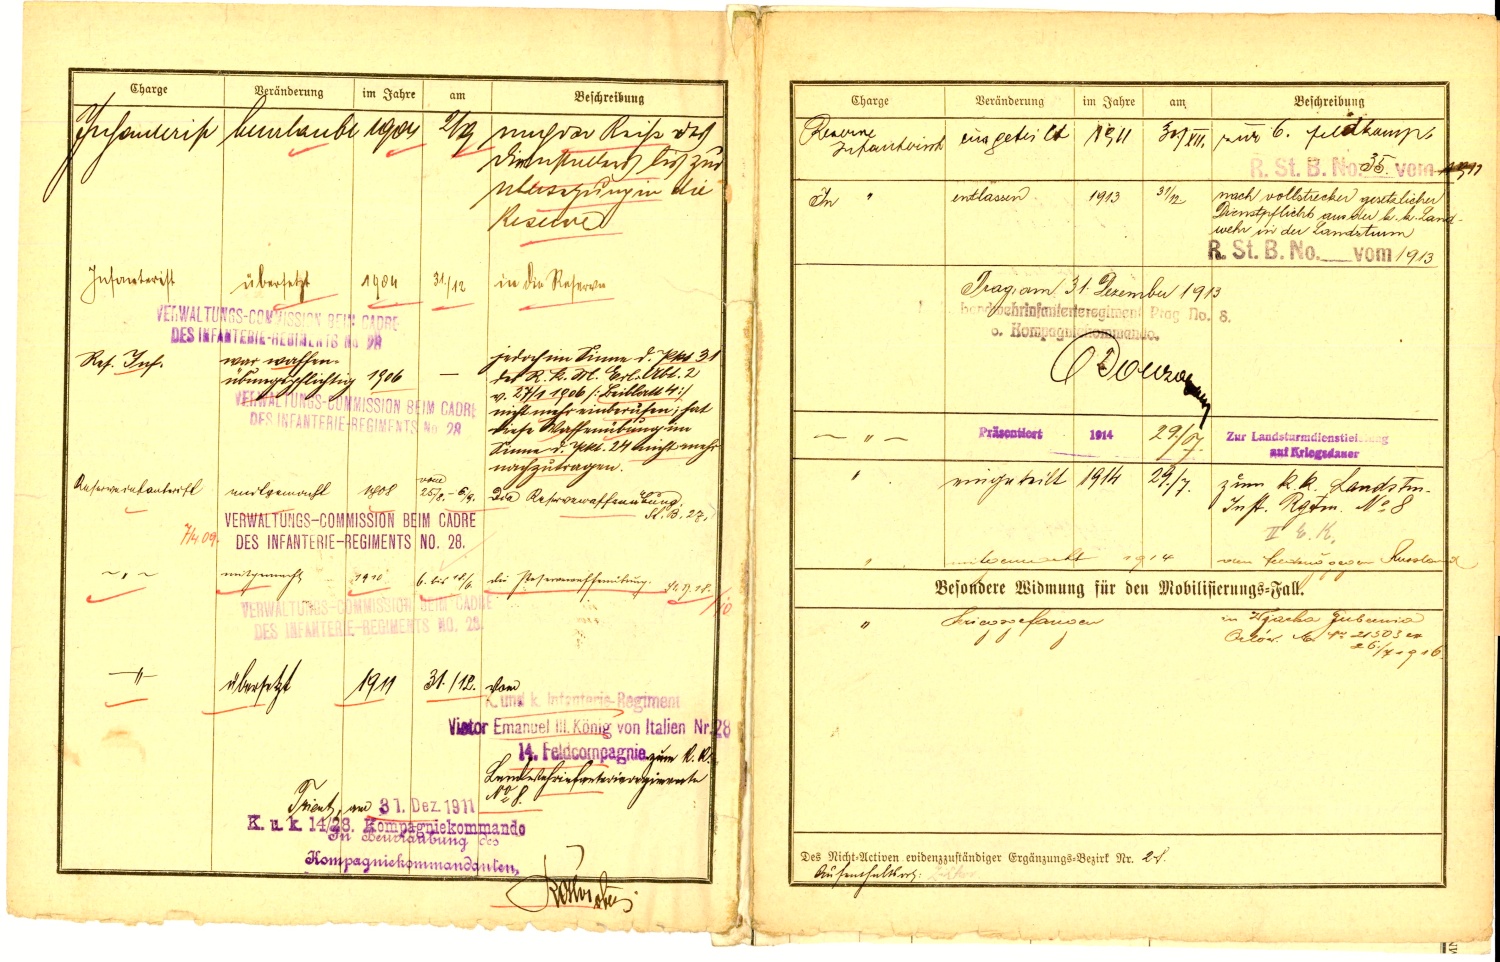 Charge Veränderung im Jahre am Beschreibung
Infanterist beurlaubt 1904 2/9 nach der Reihe des
Dienstalters bis zur
Übersetzung in die
Reserve
Infanterist übersetzt 1904 31/12 in die Reserve
VERWALTUNGS-COMMISSION BEIM CADRE
DES INFANTERIE-REGIMENTS No 28
Res. Inf. war waffen-
übungspflichtig 1906 — jedoch im Sinne d. Pkt 31
des R. K. M. Erl. Abt. 2
v. 27/1 1906 /: Beiblatt 4:/
nicht mehr einberufen; hat
diese Waffenübung im
Sinne d. Pkt. 24 nicht mehr
nachzutragen.
VERWALTUNGS-COMMISSION BEIM CADRE
DES INFANTERIE-REGIMENTS No 28
Reserveinfanterist mitgemacht 1908 vom
25/8.-6/9. Die Reservewaffenübung
St. B. 27.
7/4 09.
VERWALTUNGS-COMMISSION BEIM CADRE
DES INFANTERIE-REGIMENTS NO. 28.
~ " ~ mitgemacht 1910 6. bis 18/6 die Reservewaffenübung.
VERWALTUNGS-COMMISSION BEIM CADRE
DES INFANTERIE-REGIMENTS NO. 28.
—"— übersetzt 1911 31./12. vom
K. und k. Infanterie-Regiment
Victor Emanuel III. König von Italien Nr. 28
14. Feldcompagnie zum k. k.
Landwehrinfanterieregimente
No 8.
Trient, am 31. Dez. 1911
K. u. k. 14/28. Kompagniekommando
In Beurlaubung des
Kompagniekommandanten,
Charge Veränderung im Jahre am Beschreibung
Reserve
Infanterist eingeteilt 1911 31/XII. zur 6. Feldkomp.
R. St. B. No. 35. vom 1911
In " entlassen 1913 31/12 nach vollstreckter gesetzlicher
Dienstpflicht aus der k. k. Land-
wehr in den Landsturm
R. St. B. No. vom 1913
Prag am 31. Dezember 1913
Landwehrinfanterieregiment Prag No. 8.
6. Kompagniekommando.
— " — Präsentiert 1914 29/07. Zur Landsturmdienstleistung
auf Kriegsdauer
" eingeteilt 1914 29./7. zum k. k. Landstm.
Inft. Rgtm. No 8
II E. K.
" mitgemacht 1914 den Feldzug gegen Russland
Besondere Widmung für den Mobilisierungs-Fall.
" Kriegsgefangen in
26./7 1916.
Des Nicht-Activen evidenzzuständiger Ergänzungs-Bezirk Nr. 28.
Aufenthaltsort: